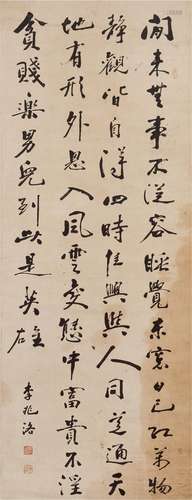 閒來無事不從容睡覺東窗日已紅萬物
靜觀皆自得四時佳興與人同道通天
地有形外思入風雲變態中富貴不淫
貧賤樂男兒到此是英雄
李兆洛